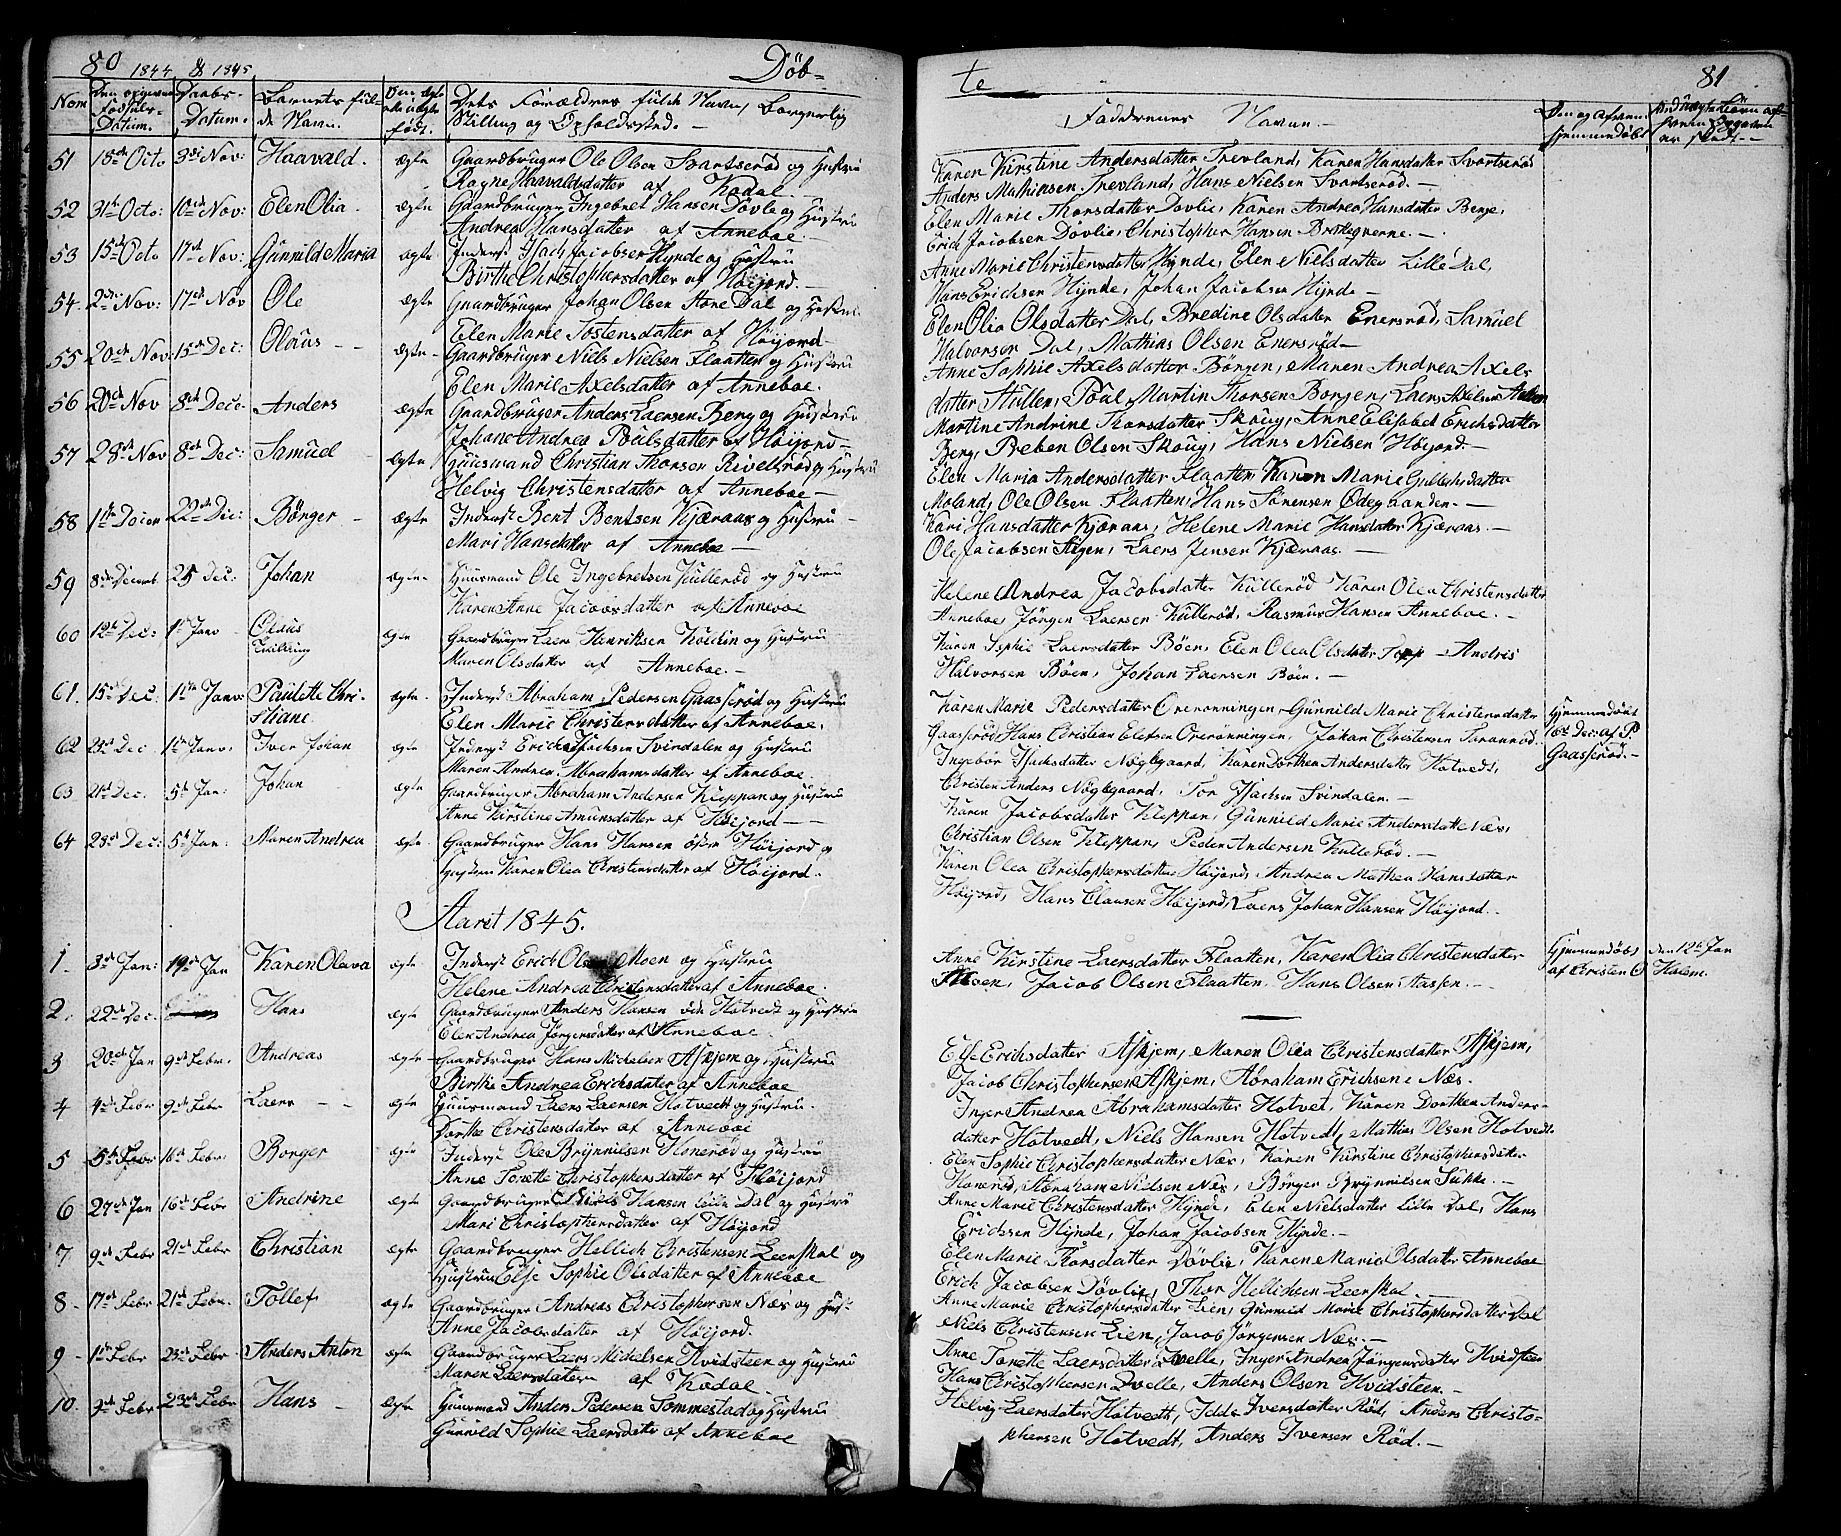 80 1844 & 1845 Döb-
Nom Den opgivne Födsels-Datum. Daabs-Datum. Barnets fulde Navn. Om ægte eller uægte födt. Dets Forældres fulde Navn, Borgerlig Stilling og Opholdssted. —
51 18de Octo 3die Nov: Haavald. ægte Gaardbruger Ole Olsen Svartserød og Hustru
Ragne Haavaldsdatter af Kodal
52 31te Octo: 10de Nov: Elen Olia. ægte Gaardbruger Ingebret Hansen Døvle og Hustru
Andrea Hansdatter af Anneboe.
53 15de Octo 17de Nov: Gunnilde Maria ægte Inderst Isach Jacobsen Hynde og Hustru
Birthe Christophersdatter af Höijord.
54. 2den Nov: 17de Nov Ole ægte Gaardbruger Johan Olsen Store Dal og Hustru
Elen Marie Tostensdatter af Höijord—
55 20de Nov: 15de Dec: Olaus - - ægte - Gaardbruger Niels Nielsen Flaatten og Hustru
Elen Marie Axelsdatter af Anneboe.
56 20de Nov 8de Dece. Anders ægte Gaardbruger Anders Laersen Berg og Hustru
Johane Andrea Poulsdatter af Höijord—
57 28de Nov 8de Dec: Samuel - ægte Huusmand Christian Thorsen Rivelsrød og Hustru
Helvig Christensdatter af Anneboe—
58 1ste Decem 22de Dec: Børger — ægte Inderst Bent Bentsen Kjæraas og Hustru -
Mari Hansdatter af Anneboe —
59 8de Decemb 25 Dec: Johan ægte Huusmand Ole Ingebretsen Kullerød og Hustru
Karen Anne Jacobsdatter af Anneboe
60 12te Dec: 1ste Janv Olaus ægte Gaardbruger Laers Henriksen og Hustru
Tvilling
Maren Olsdatter af Anneboe. —
61. 15de Dec: 1ste Janv: Paulette Chri- ægte. Inderst Abraham Pedersen Gaasserød og Hustru
stiane Elen Marie Christensdatter af Anneboe.
62 21de Dec. 1ste Janv. Iver Johan ægte Inderst Erich Isachsen Svindalen og Hustru
Maren Andrea Abrahamsdatter af Anneboe.
63 21de Dec. 5te Jan: Johan ægte Gaardbruger Abraham Andersen Kleppan og Hustru
Anne Kirstine Amundsdatter af Höijord — -
64 28de Dec: 5te Jan: Maren Andrea ægte. Gaardbruger Hans Hansen östre Höijord og
Hustru Karen Olia Christensdatter af Höijord.
Aaret 1845.
1. 3die Jan: 19de Jan Karen Oleva ægte Inderst Erich Moen og Hustru
Helene Andrea Christensdatter af Anneboe.
2. 22de Dec. Hans ægte Gaardbruger Anders Hansen öde Hotvedt og Hustru
Elen Andrea Jörgensdatter af Anneboe.
3 20de Jan 9de Febr. Andreas ægte Gaardbruger Hans Michelsen Askjem og Hustru
Birthe Andrea Erichsdatter af Anneboe
4 4de Febr 9de Febr Laers - - ægte Huusmand Laers Laersen Hotvedt og Hustru.
Dorthe Christensdatter af Anneboe
5 5te Febr 16de Febr: Borger ægte Inderst Ole Brynnilsen Honerød og Hustru
Anne Torette Christophersdatter af Höijord
6 27de Jan 16de Febr Andrine ægte Gaardbruger Niels Hansen lille Dal og Hustru
Mari Christophersdatter af Höijord
7 9de Febr 21de Febr Christian ægte Gaardbruger Hellich Christensen Leerskal og
Hustru Else Sophie Olsdatter af Anneboe
8 - 17de Febr 21de Febr. Tollef ægte Gaardbruger Andreas Christophersen Næs og Hust:
Anne Jacobsdatter af Höijord.
9 - 1ste Febr 23de Febr Anders Anton ægte Gaardbruger Laers Michelsen Hvidsteen og Hustru
Maren Laersdatter af Kodal.
10. 3de Febr 23de Febr Hans - ægte Huusmand Anders Pedersen Sommestad og Hustru
Gunnild Sophie Laersdatter af Anneboe
te 81
Faddrenes Navne. — Om og af hvem hjemmedöbt
Karen Kirstine Andersdatter Trevland, Karen Hansdatter Svartserød
Anders Mathiesen Trevland, Hans Nielsen Svartserød. —
Elen Marie Thorsdatter Dövlie, Karen Andrea Hansdatter Berge,
Erich Jacobsen Dövlie, Christopher Hansen Brekqverne. —
Anne Marie Christensdatter Hynde, Elen Nielsdatter Lille Dal,
Hans Erichsen Hynde, Johan Jacobsen Hynde —
Elen Olia Olsdatter Dal, Bredine Olsdatter Enersrød, Samuel
Halvorsen Dal, Mathias Olsen Enersrød—
Anne Sophie Axelsdatter Børgen, Maren Andrea Axels
datter Stullen, Poul Martin Thorsen Borgen, Laers Axelsen
Martine Andrine Thorsdatter Skoug, Anne Elisabet Erichsdatter
Berg, Preben Olsen Skoug, Hans Nielsen Höijord. —
Elen Maria Andersdatter Flaatten Karen Marie Gulbichsdatter
Moland, Ole Olsen Flaatten, Hans Sörensen Ödegaarden. —
Kari Hansdatter Kjæraas, Helene Marie Hansdatter Kjæraas. —
Ole Jacobsen Stigen, Laers Jensen Kjæraas. —
Helene Andrea Jacobsdatter Kullerød Karen Olea Christensdatter
Anneboe, Jörgen Laersen Kullerød, Rasmus Hansen Anneboe. —
Karen Sophie Laersdatter Böen, Elen Olea Olsdatter Topp - Andris
Halvorsen Böen, Johan Laersen Böen. —
Karen Marie Pedersdatter Overønningen, Gunnild Marie Christensdatter Hjemmedöbt
Gaasserød, Hans Christian Elefsen Overønningen, Johan Christensen 16de Dec: af P.
Ingebor Isachsdatter Nøglegaard, Karen Dorthea Andersdatter Hotvedt, Gaasserød. —
Christen Anders Nøglegaard, Tor Isachsen Svindalen. —
Karen Jacobsdatter Kleppan, Gunnild Marie Andersdatter Næs,
Christian Olsen Kleppan, Peder Andersen Kullerød. —
Karen Olea Christophersdatter Höijord, Andrea Mathea Hansdatter
Höijord, Hans Clausen Höijord, Laers Johan Hansen Höijord. -
Anne Kirstine Laersdatter Flaatten, Karen Olia Christensdatter Hjemmedöbt den 12te Jan
Moen, Jacob Olsen Flaatten, Hans Olsen Aassen. — af Christen O Holem.
—
Else Erichsdatter Askjem, Maren Olia Christensdatter Askjem,
Jacob Christophersen Askjem, Abraham Erichsen Næs.
Inger Andrea Abrahamsdatter Hotvet, Karen Dorthea Anders-
datter Hotvedt, Niels Hansen Hotvedt, Mathias Olsen Hotvedt
Elen Sophie Christophersdatter Næs, Karen Kirstine Christophersdatter
Honerød, Abraham Nielsen Næs, Börgen Brynnilsen Sukke. —
Anne Marie Christensdatter Hynde, Elen Nielsdatter Lille Dal, Hans
Erichsen Hynde, Johan Jacobsen Hynde. —
Elen Marie Thorsdatter Dövlie, Karen Maria Olsdatter Anneboe
Erich Jacobsen Dövlie, Thor Hellichsen Leerskal. —
Anne Marie Christophersdatter Lien, Gunnild Marie Christophersdatter Dal
Niels Christensen Lien, Jacob Jörgensen Næs. —
Anne Torette Laersdatter Dvelle, Inger Andrea Jörgensdatter Hvidsteen
Hans Christophersen Dvelle, Anders Olsen Hvidsteen. —
Helvig Laersdatter Hotvedt, Idde Iversdatter Rød, Anders Christo-
phersen Hotvedt, Anders Iversen Rød. —